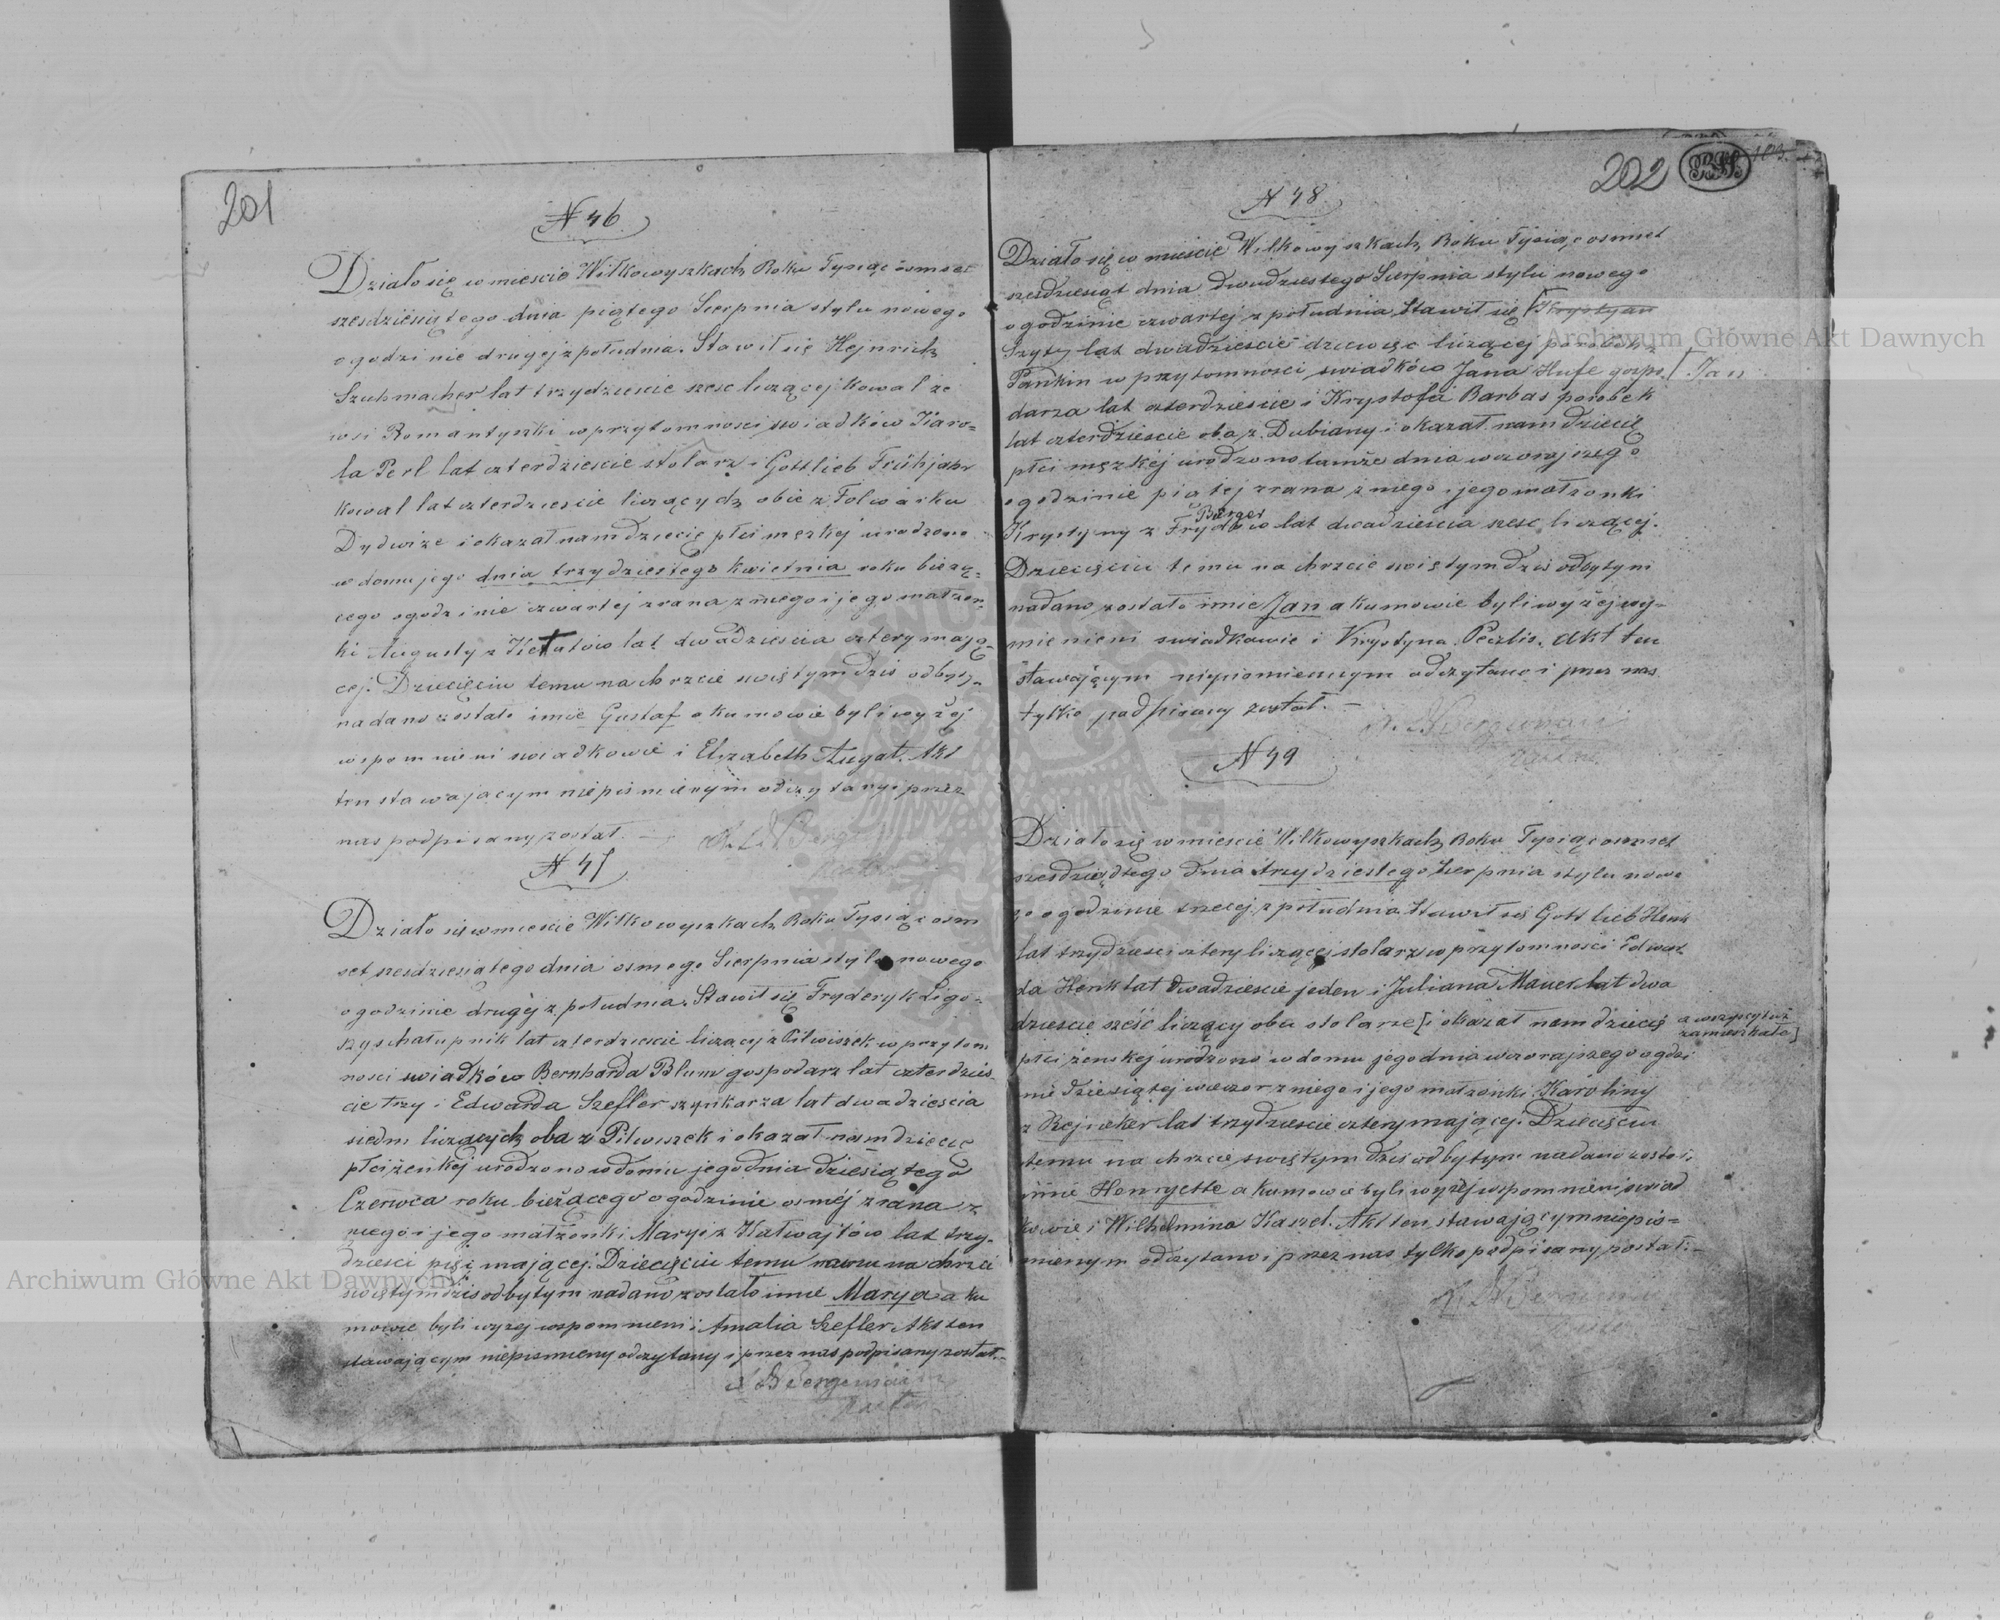 201
N 46
Działo się w mieście Wiłkowyszkach Roku Tysiąc ósmset
sześdziesiątego dnia piątego Sierpnia stylu nowego
o godzinie drugiej z południa. Stawił się Hejnrich
Szuhmacher lat trzydzieście sześć liczącej kowal ze
wsi Romantyszki w przytomności swiadków Karo=
la Perl lat czterdzieście stolarz i Gottlieb Frühjahr
kowal lat czterdzieście liczących obie z Folwarku
Dydwiże i okazał nam dziecię płci męzkéj urodzone
w domu jego dnia trzydziestego kwietnia roku bieżą=
cego o godzinie czwartej zrana z niego i jego małżon=
ki Augusty z lat dwadzieścia cztery mają=
cej. Dziecięciu temu na chrzcie swiętym dziś odbyty=
nadano zostało imie Gustaf a kumowie byli wyżej
wspomnieni swiadkowie i Elzabeth Augat. Akt
ten stawającym niepiśmienym odczytany i przez
nas podpisany został. —
N 47
Działo się w mieście Wiłkowyszkach Roku Tysiąc ósm
set sześdziesiątego dnia osmego Sierpnia stylu nowego
o godzinie drugéj z południa. Stawił się Fryderyk Ligo=
szys chałupnik lat czterdzieście liczący z Pilwiszek w przytom
ności swiadków Bernharda Blum gospodarz lat czterdzieś=
cie trzy i Edwarda Szefler szynkarza lat dwadzieścia
siedm liczących oba z Pilwiszek i okazał nam dziecię
płci żeńkéj urodzono w domu jego dnia dziesiątego
Czerwca roku bieżącego o godzinie osméj zrana z
niego i jego małżonki Maryi z Natwajtów lat trzy=
dzieści pięć mającej. Dziecięciu temu na chrzci
swiętym dziś odbytym nadano zostało imie Marya a ku
mowie byli wyżej wspomnieni i Amalia Szefler Akt ten
stawającym niepismieny odczytany i przez nas podpisany został.—
202
N 48
Działo się w mieście Wiłkowyszkach Roku Tysiąc osmset
sześdziesiąt dnia dwudziestego Sierpnia stylu nowego
o godzinie czwartej z południa Stawił się [Krystyan
Szyty lat dwadzieście dziewięć liczącej parobek z
Pankin w przytomności swiadków Jana Hufe gospo= [Jan
darza lat czterdzieście i Krystofa Barbas parobek
lat czterdzieście oba z Dubiany i okazał nam dziecię
płci męzkiéj urodzono tamże dnia wczorajszego
o godzinie piątej zrana z niego i jego małżonki
Berger
Krystyny z Frydów lat dwadzieścia sześć liczącej.
Dziecięciu temu na chrzcie swiętym dziś odbytym
nadano zostało imie Jan a kumowie byli wyżej wy=
mienieni swiadkowie i Krystyna Peczlis. akt ten
stawającym niepiśmiennym odczytano i przez nas
tylko podpisany został. —
N 49
Działo się w mieście Wiłkowyszkach Roku Tysiąc osmset
sześdziesiątego dnia trzydziestego Sierpnia stylu nowe
go o godzinie trzeciej z południa Stawił się Gottlieb Henk
lat trzydzieści cztery liczącej stolarz w przytomności Edwar
da Henk lat dwadzieście jeden i Juliana Mauer lat dwa
dzieście sześć liczący oba stolarze [i okazał nam dziecię a wszyscy tuż
zamieszkało]
płci żenskéj urodzono w domu jego dnia wczorajszego o godzi
nie dziesiątej wieczor z niego i jego małżonki Karoliny
z Rejneker lat trzydzieście cztery mającej. Dziecięciu
temu na chrzcie swiętym dziś odbytym nadano zosta:
imie Henryette a kumowie byli wyżej wspomnieni swiad
kowie i Wilhelmina Kaszel. Akt ten stawającym niepis=
mienym odczytano i przez nas tylko podpisany został.—
Archiwum Główne Akt Dawnych
Archiwum Główne Akt Dawnych